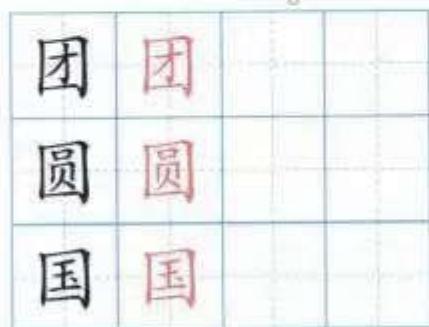 团 团
圆 圆
国 国